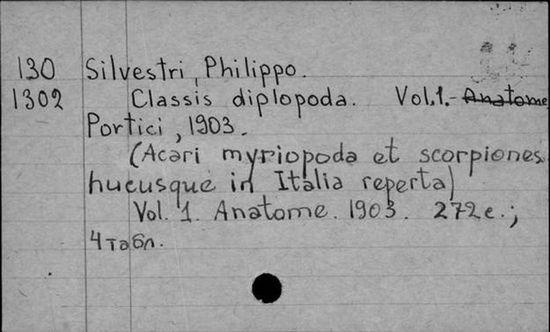 130 Silvestri, Philippo.
1302 Classis diplopoda. Vol.1.- Anatome
Portici, 1903.
(Acari myriopoda et scorpiones
hucusque in Italia reperta)
Vol. 1. Anatome. 1903. 272 с.;
4 табл.